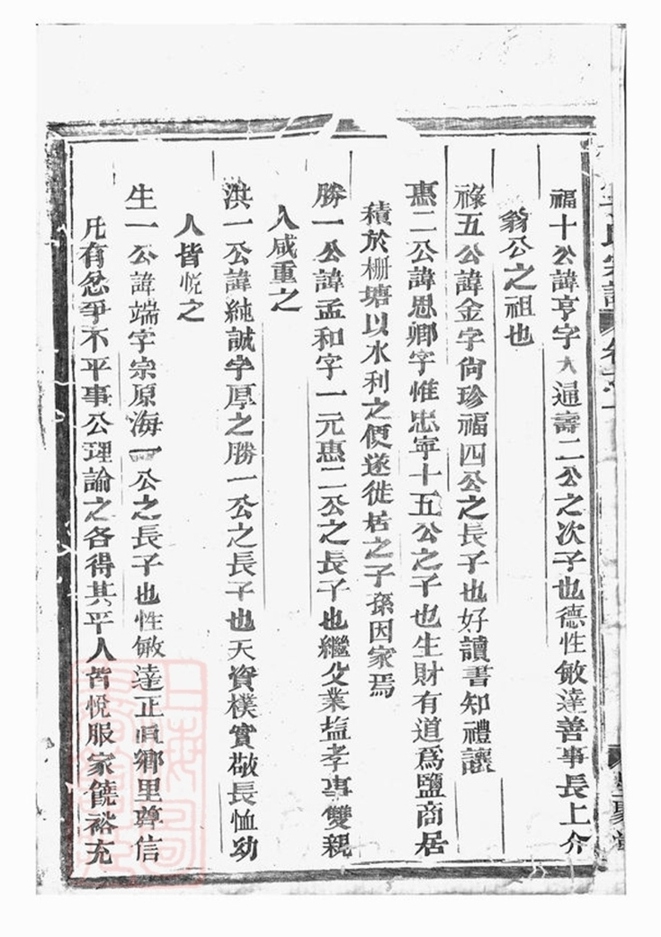 福十公諱亨字大通壽二公之次子也德性敏達善事長上介
翁公之祖也
祿五公諱金字尙珍福四公之長子也好讀書知禮讓
惠二公諱思卿字惟忠寧十五公之子也生財有道爲鹽商居
積於柵塘以水利之便遂徙居之子孫因家焉
勝一公諱孟和字一元惠二公之長子也繼父業塩孝事雙親
人咸重之
洪一公諱純誠字厚之勝一公之長子也天資樸實敬長恤幼
人皆悅之
生一公諱端字宗原海一公之長子也性敏達正直鄉里尊信
凡有忿爭不平事公理論之各得其平人皆悅服家饒裕充
氏宗譜